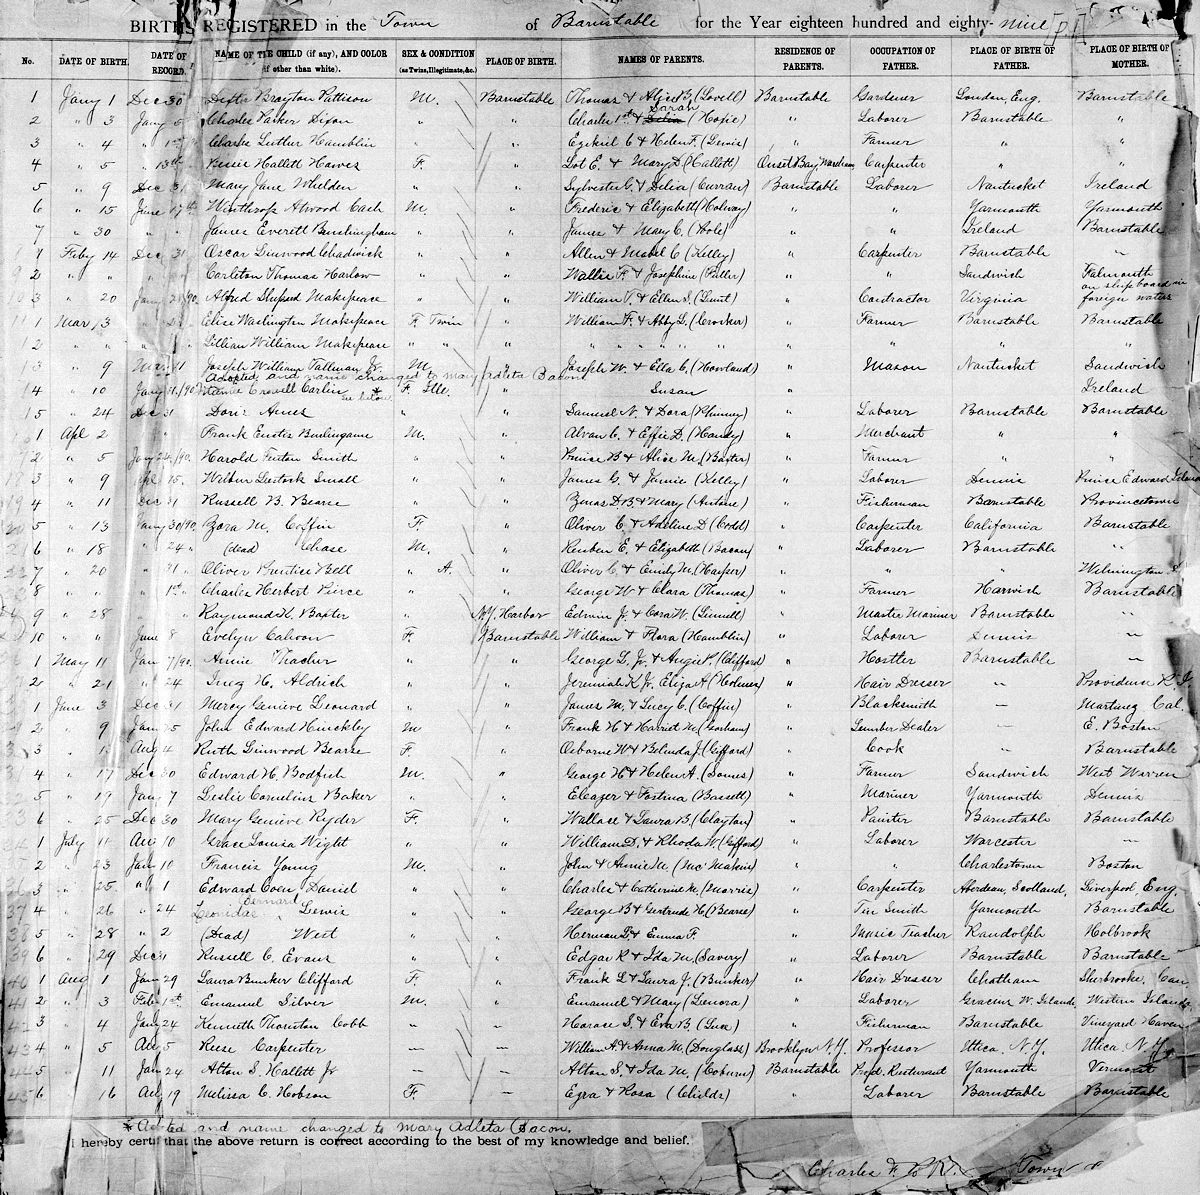 BIRTHS REGISTERED in the Town of Barnstable for the Year eighteen hundred and eighty-nine
No. DATE OF BIRTH. DATE OF RECORD. NAME OF THE CHILD (if any), AND COLOR (if other than white). SEX & CONDITION (as Twins, Illegitimate, &c.) PLACE OF BIRTH. NAMES OF PARENTS. RESIDENCE OF PARENTS. OCCUPATION OF FATHER. PLACE OF BIRTH OF FATHER. PLACE OF BIRTH OF MOTHER.
1 Jany 1 Dec 30 Dexter Brayton Pattison M. Barnstable Thomas & Alice B. (Lovell) Barnstable Gardener London, Eng. Barnstable
2 " 3 Jany 5 Charles Parker Dixon " " Charles 1st & Sarah (Hoxie) " Laborer Barnstable "
3 " 4 " 1st Charles Luther Hamblin " " Ezekiel C & Helen F. (Lewis) " Farmer " "
4 " 5 " 13th Bessie Hallett Hawes F. " Lot E. & Mary D. (Hallett) Onset Bay, Wareham Carpenter " "
5 " 9 Dec 31 Mary Jane Whelden " " Sylvester G. & Delia (Curran) Barnstable Laborer Nantucket Ireland
6 " 15 June 17th Winthrop Atwood Cash M. " Frederic & Elizabeth (Holway) " " Yarmouth Yarmouth
7 " 30 " " James Everett Cunningham " " James & Mary C. (Cole) " " Ireland Barnstable
1 Feby 14 Dec 31 Oscar Linwood Chadwick " " Allen & Mabel C (Kelley) " Carpenter Barnstable "
2 " " " Carleton Thomas Harlow " " Wallis F. & Josephine (Fuller) " " Sandwich Falmouth
3 " 20 Jany 28/90 Alfred Shepard Makepeace " " William V. & Ellen S. (Lunt) " Contractor Virginia on shipboard in foreign waters
1 Mar 3 " Elise Washington Makepeace F. Twin " William F. & Abby L. (Crocker) " Farmer Barnstable Barnstable
2 " " " Lillian William Makepeace " " " " " " " " " " "
3 " 9 Mar 11 Joseph William Tallman Jr. M. " Joseph W. & Ella C. (Howland) " Mason Nantucket Sandwich
Adopted and name changed to Mary Adleta Bacon
4 " 10 Jany 31/90 Crowell Carlin * see below F. Ille. " Susan " Ireland
5 " 24 Dec 31 Doris Ames " " Samuel N. & Dora (Phinney) " Laborer Barnstable Barnstable
1 Apl 2 " Frank Eustis Burlingame M. " Alvan C. & Effie D. (Handy) " Merchant " "
2 " 5 Jany 24/90 Harold Fenton Smith " " Prince B & Alice M. (Baxter) " Farmer " "
3 " 9 Apl 15 Wilbur Small " " James G. & Jennie (Kelley) " Laborer Dennis Prince Edward Island
4 " 11 Dec 31 Russell B. Bearse " " Zenas D.B. & Mary (Antone) " Fisherman Barnstable Provincetown
5 " 13 Jany 30/90 Zora M. Coffin F. " Oliver C. & Adeline D (Codd) " Carpenter California Barnstable
6 " 18 " 24 " (dead) Chase M. " Reuben E. & Elizabeth (Bacon) " Laborer Barnstable "
7 " 20 " 31 " Oliver Prentice Bell " A " Oliver C. & Emily M. (Harper) " " Wilmington
8 " " 1st " Charles Herbert Pierce " " George W & Clara (Thomas) " Farmer Harwich Barnstable
9 " 28 " " Raymond K. Baxter " N.Y. Harbor Edwin J. & Cora W. (Linnell) " Master Mariner Barnstable "
10 " " June 8 Evelyn Cahoon F. Barnstable William & Flora (Hamblin) " Laborer Dennis "
1 May 11 Jan 7/90 Annie Thacher " " George L. Jr. & Angie P. (Clifford) " Hostler Barnstable "
2 " 21 " 24 Inez H. Aldrich " " Jeremiah K Jr. Eliza A (Holmes) " Hair Dresser " Providence R.I.
1 June 3 Dec 31 Mercy Genieve Leonard " " James M. & Lucy C. (Coffin) " Blacksmith " Martinez Cal.
2 " 9 Jan 25 John Edward Hinckley M " Frank H & Harriet M (Gorham) " Lumber Dealer E. Boston
3 " 13 Aug 4 Ruth Linwood Bearse F. " Osborne W & Belinda J. (Gifford) " Cook " Barnstable
4 " 17 Dec 30 Edward H. Bodfish M. " George H & Helen A. (Jones) " Farmer Sandwich West Warren
5 " 19 Jany 7 Leslie Cornelius Baker " " Eleazer & Fostina (Bassett) " Mariner Yarmouth Dennis
6 " 25 Dec 30 Mary Genieve Ryder F. " Wallace & Laura B. (Clayton) " Painter Barnstable Barnstable
1 July 10 Aug 10 Grace Louisa Wight " " William D. & Rhoda W (Gifford) " Laborer Worcester "
2 " 23 Jan 10 Francis Young M. " John & Annie M. (McMakin) " " Charlestown Boston
3 " 25 " 1 Edward Coen Daniel " " Charles & Catherine M. (Morris) " Carpenter Aberdeen, Scotland, Liverpool, Eng.
37 4 " 26 " 24 Leonidae Bernard Lewis " " George B & Gertrude H (Bearse) " Tin Smith Yarmouth Barnstable
38 5 " 28 " 2 (Dead) West " " Herman L. & Emma F. " Music Teacher Randolph Holbrook
39 6 " 29 Dec 31 Russell C. Evans " " Edgar R & Ida M. (Savery) " Laborer Barnstable Barnstable
40 1 Aug 1 Jan 29 Laura Bunker Clifford F. " Frank L & Laura J. (Bunker) " Hair Dresser Chatham Sherbrooke, Can
41 2 " 3 Feb 1st Emanuel Silver M. " Emanuel & Mary (Lenora) " Laborer Graciosa W. Islands Western Islands
42 3 " 4 Jany 24 Kenneth Thornton Cobb " " Horace S. & Eva B (Luce) " Fisherman Barnstable Vineyard Haven
43 4 " 5 Aug 5 Reese Carpenter — — William H. & Anna M. (Douglass) Brooklyn N.Y. Professor Utica, N.Y. Utica, N.Y.
44 5 " 11 Jan 24 Alton S. Hallett Jr — — Alton S. & Ida M. (Coburn) Barnstable Propr. Restaurant Yarmouth Vermont
45 6 " 16 Aug 19 Melissa C. Hobson F. — Ezra & Rosa (Childs) " Laborer Barnstable Barnstable
* Adopted and name changed to Mary Adleta Bacon.
I hereby certify that the above return is correct according to the best of my knowledge and belief.
Charles F. Town